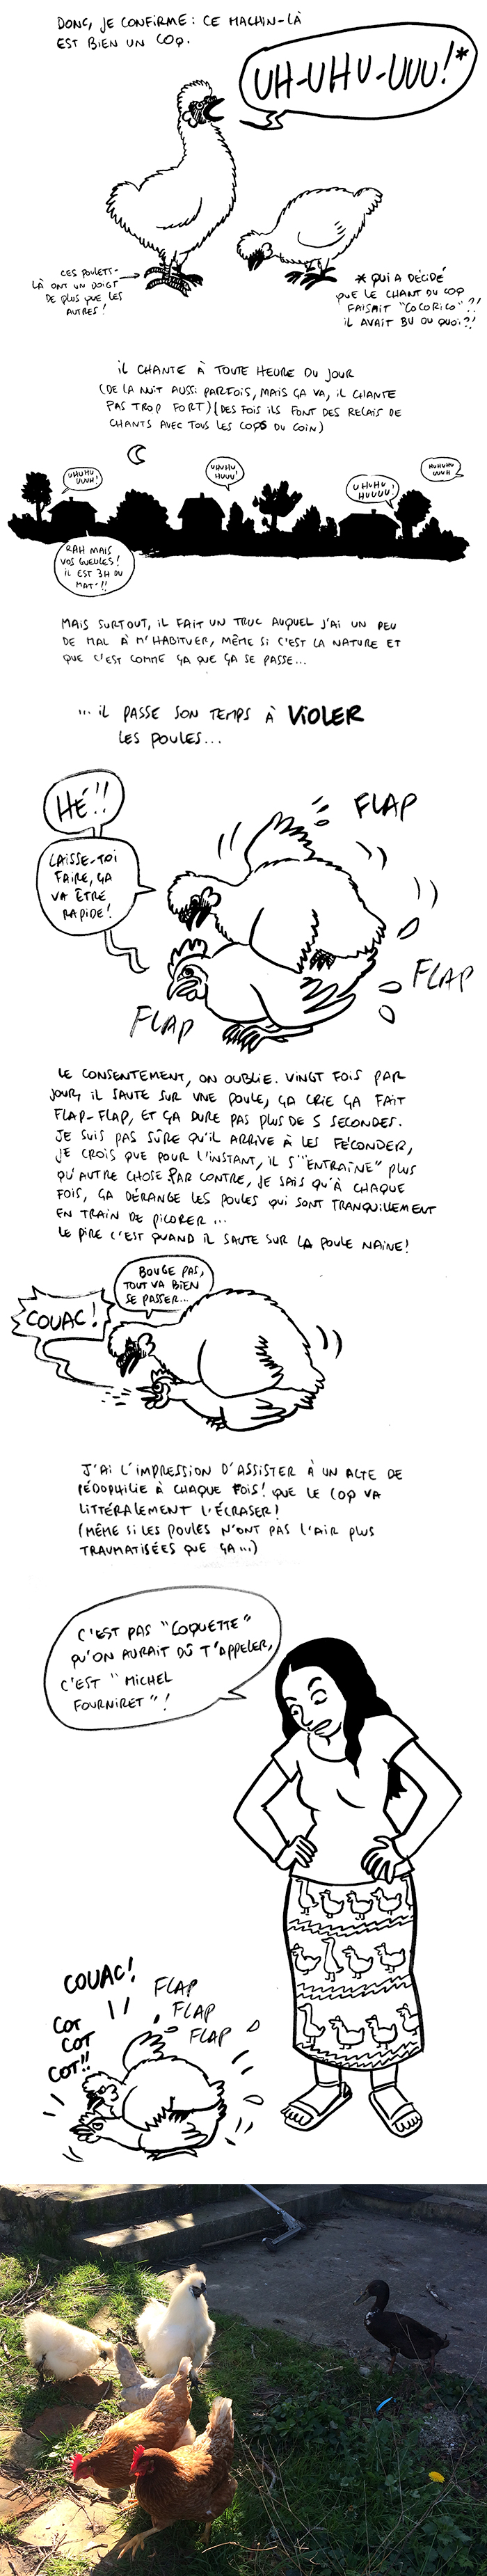 DONC, JE CONFIRME : CE MACHIN-LÀ
EST BIEN UN COQ.
UH-UHU-UUU!*
CES POULETS-
LÀ ONT UN DOIGT
DE PLUS QUE LES
AUTRES!
* QUI A DÉCIDÉ
QUE LE CHANT DU COQ
FAISAIT "COCORICO"?!
IL AVAIT BU OU QUOI?!
IL CHANTE À TOUTE HEURE DU JOUR
(DE LA NUIT AUSSI PARFOIS, MAIS ÇA VA, IL CHANTE
PAS TROP FORT) (DES FOIS ILS FONT DES RELAIS DE
CHANTS AVEC TOUS LES COQS DU COIN)
UHUHU
UUUH!
UHUHU
HUUU!
UHUHU
HUUUU!
HUHUHU
UUUH
RAH MAIS
VOS GUEULES!
IL EST 3H DU
MAT'!!
MAIS SURTOUT, IL FAIT UN TRUC AUQUEL J'AI UN PEU
DE MAL À M'HABITUER, MÊME SI C'EST LA NATURE ET
QUE C'EST COMME ÇA QUE ÇA SE PASSE...
... IL PASSE SON TEMPS À VIOLER
LES POULES...
HÉ!!
LAISSE-TOI
FAIRE, ÇA
VA ÊTRE
RAPIDE!
FLAP
FLAP
FLAP
LE CONSENTEMENT, ON OUBLIE. VINGT FOIS PAR
JOUR, IL SAUTE SUR UNE POULE, ÇA CRIE ÇA FAIT
FLAP-FLAP, ET ÇA DURE PAS PLUS DE 5 SECONDES.
JE SUIS PAS SÛRE QU'IL ARRIVE À LES FÉCONDER,
JE CROIS QUE POUR L'INSTANT, IL S'"ENTRAÎNE" PLUS
QU'AUTRE CHOSE. PAR CONTRE, JE SAIS QU'À CHAQUE
FOIS, ÇA DÉRANGE LES POULES QUI SONT TRANQUILLEMENT
EN TRAIN DE PICORER...
LE PIRE C'EST QUAND IL SAUTE SUR LA POULE NAINE!
BOUGE PAS,
TOUT VA BIEN
SE PASSER...
COUAC!
J'AI L'IMPRESSION D'ASSISTER À UN ACTE DE
PÉDOPHILIE À CHAQUE FOIS! QUE LE COQ VA
LITTÉRALEMENT L'ÉCRASER!
(MÊME SI LES POULES N'ONT PAS L'AIR PLUS
TRAUMATISÉES QUE ÇA...)
C'EST PAS "COQUETTE"
QU'ON AURAIT DÛ T'APPELER,
C'EST "MICHEL
FOURNIRET"!
COUAC!
COT
COT
COT!!
FLAP
FLAP
FLAP